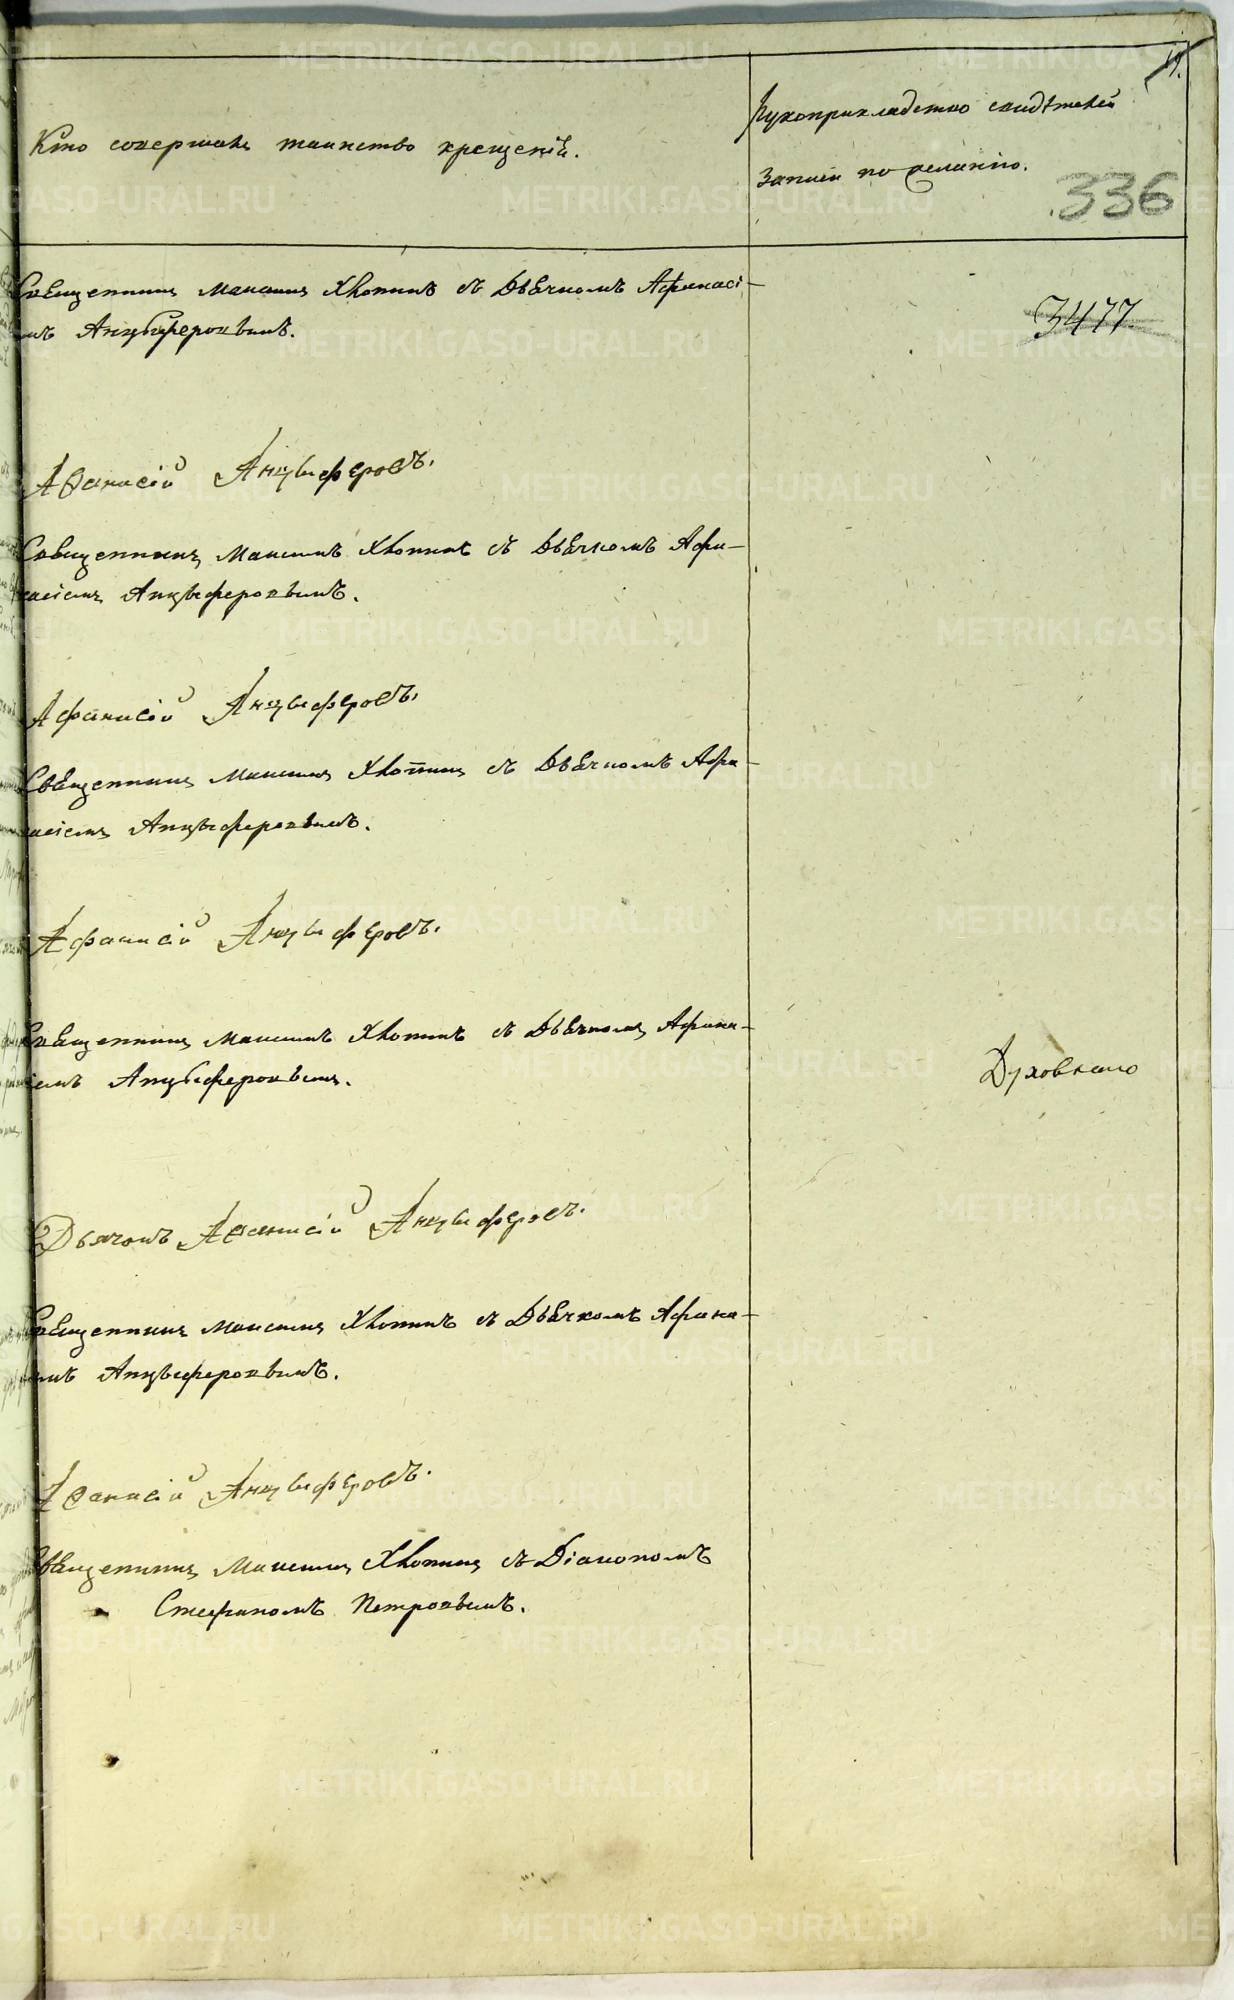 Кто совершалъ таинство крещенія.
Рукоприкладство свидѣтелей
записи по желанію.
336
Священникъ Максимъ Хлопинъ съ Дьячкомъ Афанасі-
мъ Анцыферовымъ.
3477
Афанасій Анцыферовъ.
Священникъ Максимъ Хлопинъ съ Дьячкомъ Афа-
насіемъ Анцыферовымъ.
Афанасій Анцыферовъ.
Священникъ Максимъ Хлопинъ съ Дьячкомъ Афа-
насіемъ Анцыферовымъ.
Афанасій Анцыферовъ.
Священникъ Максимъ Хлопинъ съ Дьячкомъ Афана-
іемъ Анцыферовымъ.
Духовнаго
Дьячокъ Афанасій Анцыферовъ.
Священникъ Максимъ Хлопинъ съ Дьячкомъ Афана-
емъ Анцыферовымъ.
Афанасій Анцыферовъ.
Священникъ Максимъ Хлопинъ съ Діакономъ
Стефаномъ Петровымъ.
METRIKI.GASO-URAL.RU